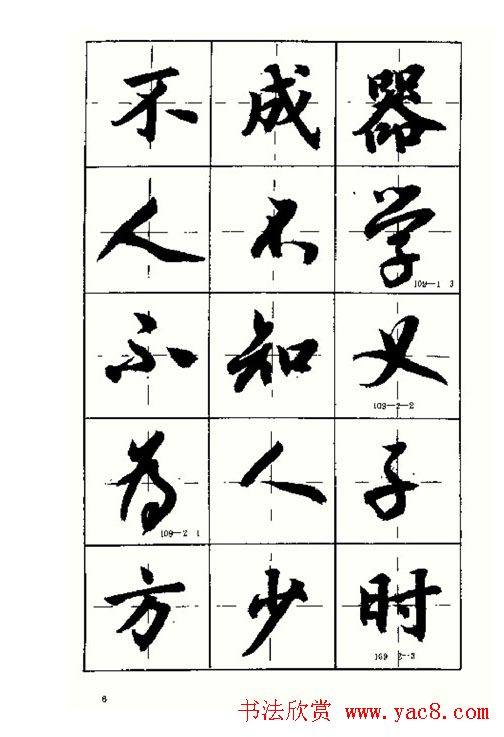 不成器
人不学
109—1 3
不知义
109—2—2
为人子
109—2 1
方少时
109 2-3
6
书法欣赏 www.yac8.com